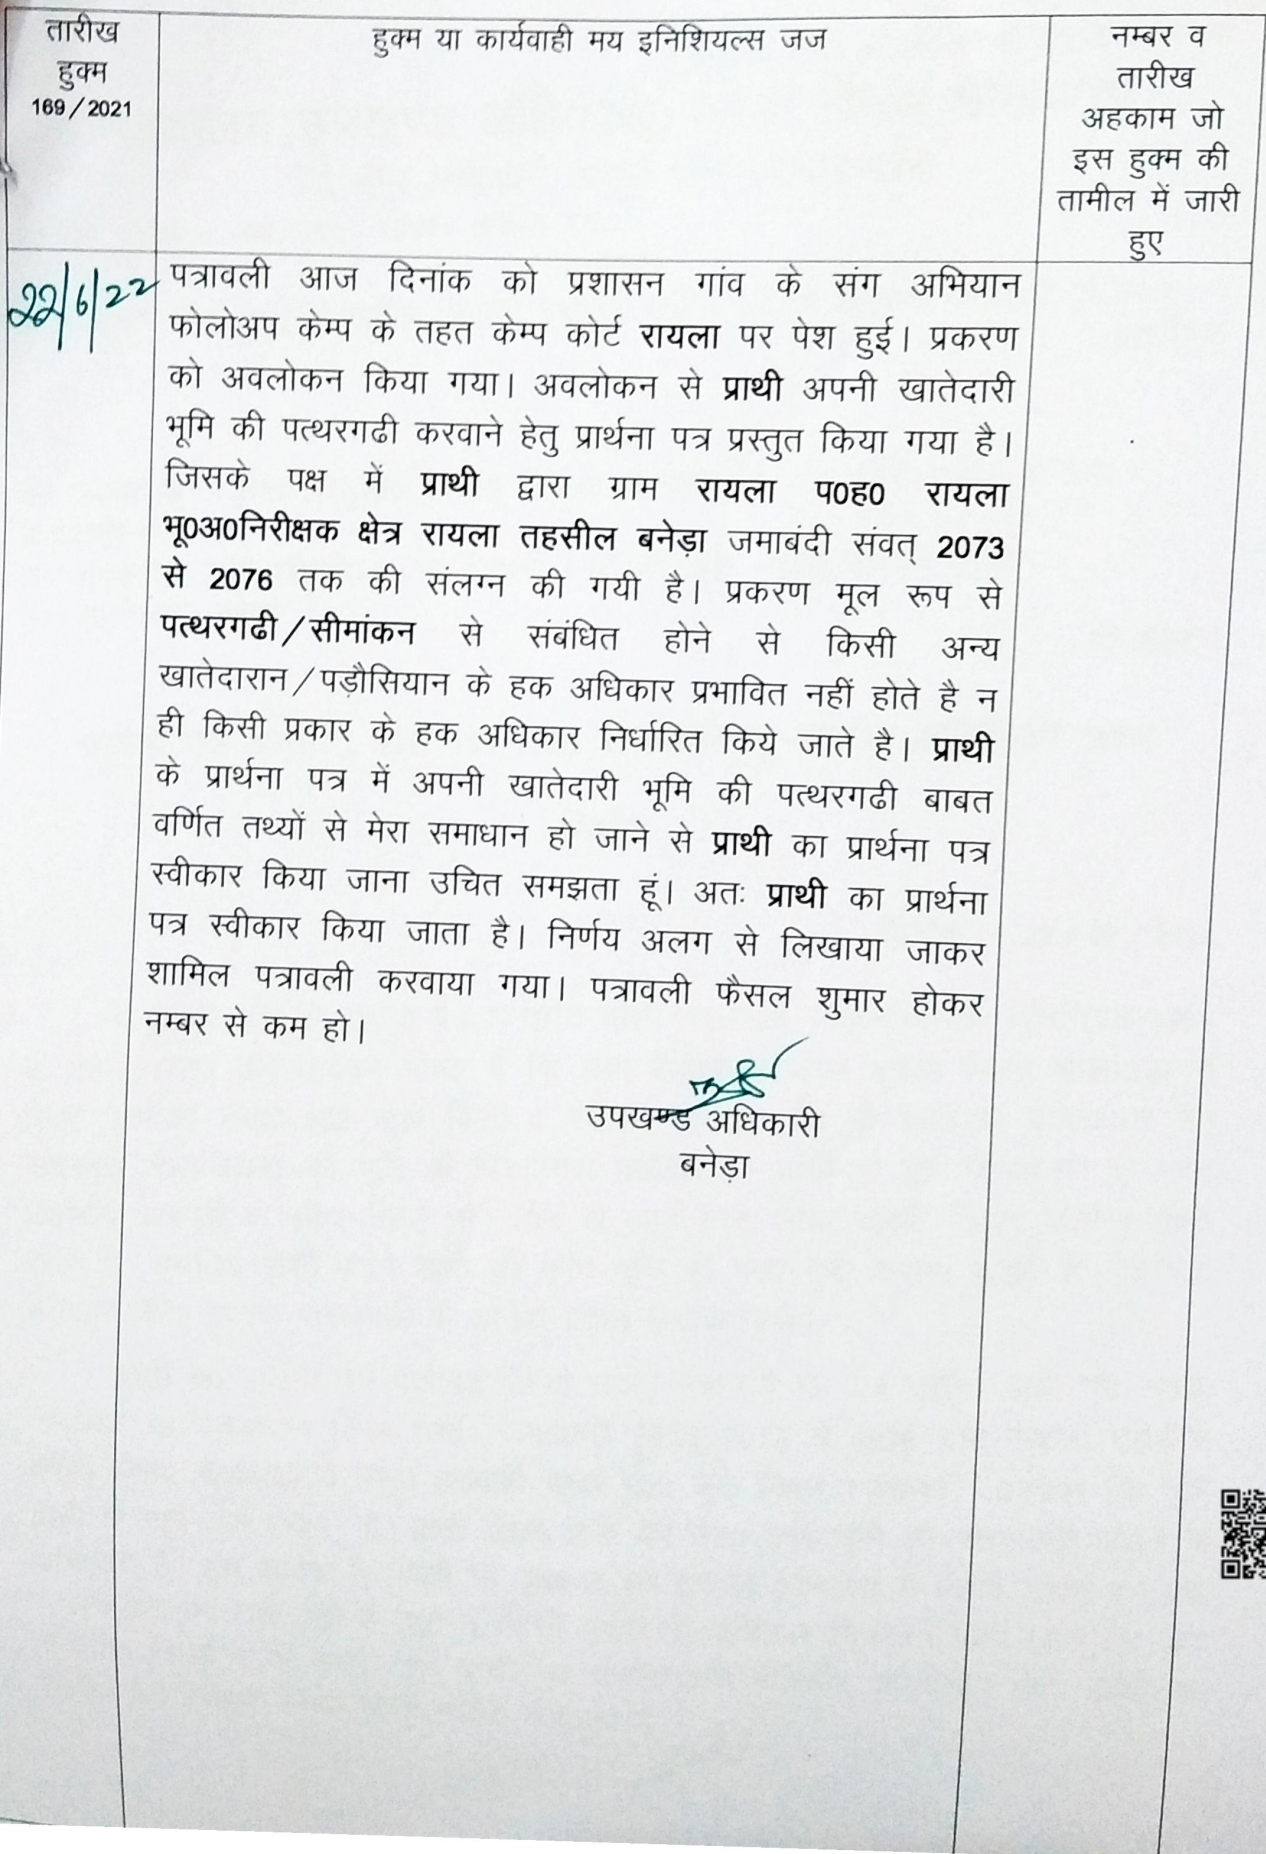 तारीख
हुक्म
169/2021
हुक्म या कार्यवाही मय इनिशियल्स जज
नम्बर व
तारीख
अहकाम जो
इस हुक्म की
तामील में जारी
हुए
22/6/22
पत्रावली आज दिनांक को प्रशासन गांव के संग अभियान
फोलोअप केम्प के तहत केम्प कोर्ट रायला पर पेश हुई। प्रकरण
को अवलोकन किया गया। अवलोकन से प्राथी अपनी खातेदारी
भूमि की पत्थरगढी करवाने हेतु प्रार्थना पत्र प्रस्तुत किया गया है।
जिसके पक्ष में प्राथी द्वारा ग्राम रायला प0ह0 रायला
भू0अ0निरीक्षक क्षेत्र रायला तहसील बनेड़ा जमाबंदी संवत् 2073
से 2076 तक की संलग्न की गयी है। प्रकरण मूल रूप से
पत्थरगढी/सीमांकन से संबंधित होने से किसी अन्य
खातेदारान/पड़ौसियान के हक अधिकार प्रभावित नहीं होते है न
ही किसी प्रकार के हक अधिकार निर्धारित किये जाते है। प्राथी
के प्रार्थना पत्र में अपनी खातेदारी भूमि की पत्थरगढी बाबत
वर्णित तथ्यों से मेरा समाधान हो जाने से प्राथी का प्रार्थना पत्र
स्वीकार किया जाना उचित समझता हूं। अतः प्राथी का प्रार्थना
पत्र स्वीकार किया जाता है। निर्णय अलग से लिखाया जाकर
शामिल पत्रावली करवाया गया। पत्रावली फैसल शुमार होकर
नम्बर से कम हो।
उपखण्ड अधिकारी
बनेड़ा